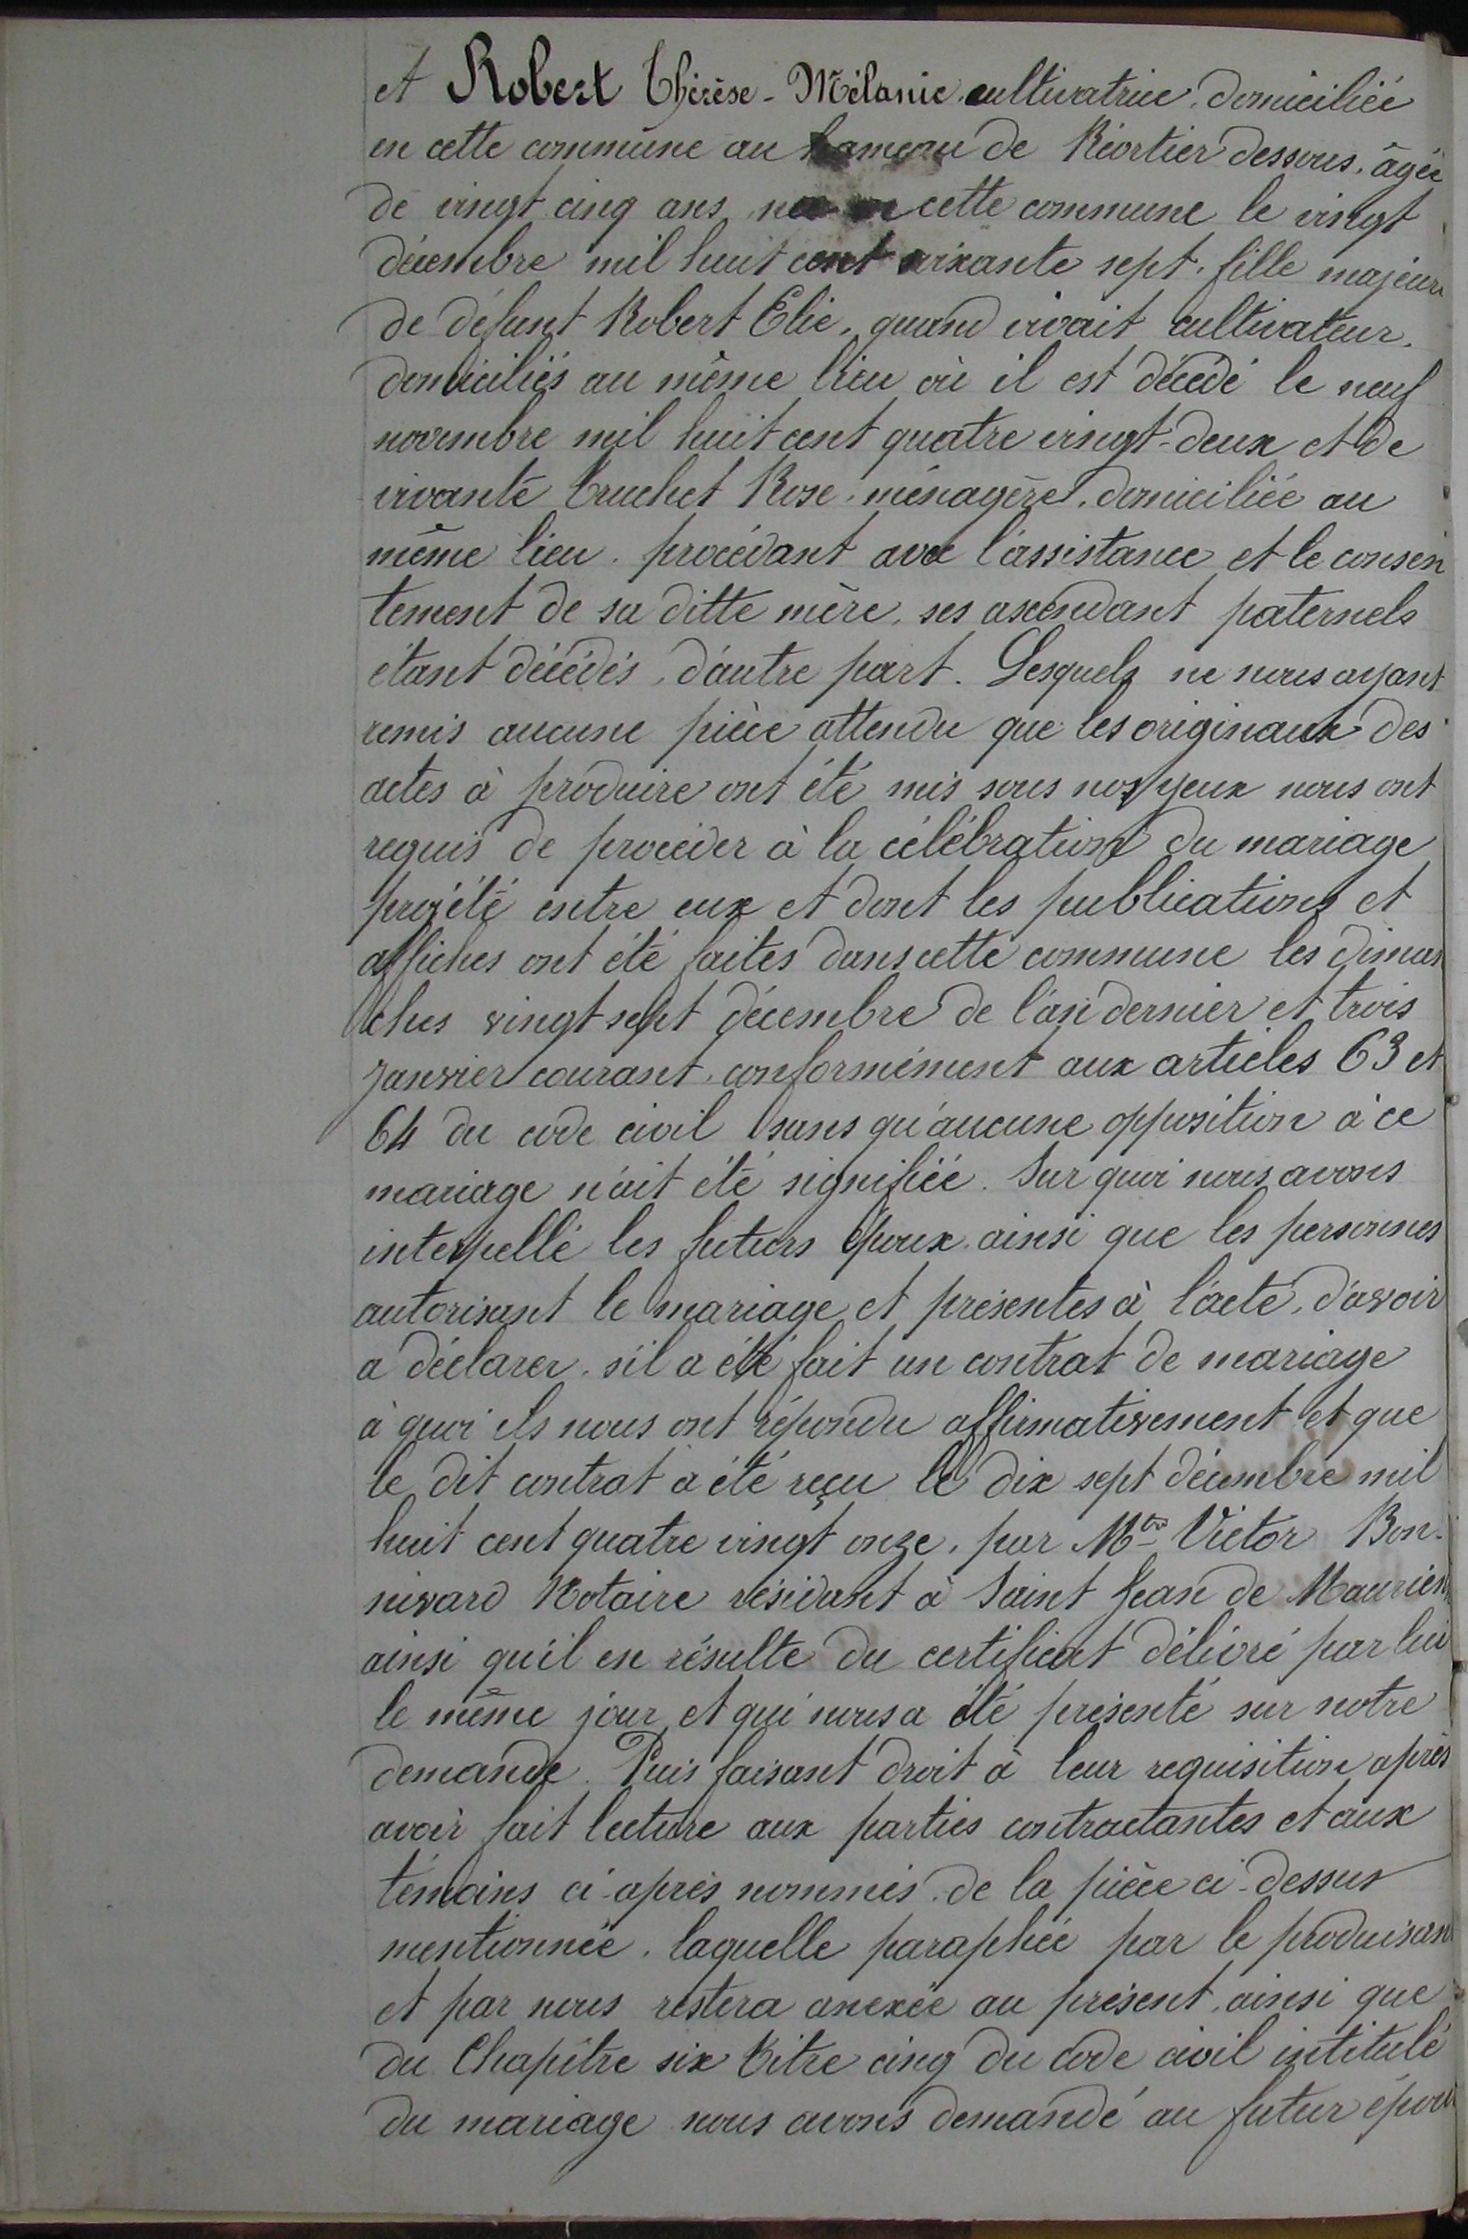 et Robert Thérèse-Mélanie. cultivatrice. domiciliée
en cette commune au hameau de Réortier dessous. âgée
de vingt cinq ans née en cette commune le vingt
décembre mil huit cent soixante sept. fille majeure
de défunt Robert Elie, quand vivait cultivateur.
domiciliés au même lieu où il est décédé le neuf
novembre mil huit cent quatre vingt-deux et de
vivante Truchet Rose. ménagère. domiciliée au
même lieu. procédant avec l'assistance et le consen
tement de sa ditte mère, ses ascendant paternels
étant décédés, d'autre part. Lesquels ne nous ayant
remis aucune pièce attendu que les originaux des
actes à produire ont été mis sous nos yeux nous ont
requis de procéder à la célébration du mariage
projété entre eux et dont les publications et
affiches ont été faites dans cette commune les diman
ches vingt sept décembre de l'an dernier et trois
Janvier courant. conformément aux articles 63 et
64 du code civil sans qu'aucune opposition à ce
mariage n'ait été signifiée. Sur quoi nous avons
interpellé les futurs époux ainsi que les personnes
autorisant le mariage et présentes à l'acte, d'avoir
a déclarer. s'il a été fait un contrat de mariage
à quoi ils nous ont répondu affirmativement et que
le dit contrat a été reçu le dix sept décembre mil
huit cent quatre vingt onze. par Mtre Victor Bon-
nivard Notaire résidant à Saint Jean de Maurien
ainsi qu'il en résulte du certificat délivré par lui
le même jour et qui nous a été présenté sur notre
demande. Puis faisant droit à leur requisition après
avoir fait lecture aux parties contractantes et aux
témoins ci-après nommés. de la pièce ci-dessus
mentionnée. laquelle paraphée par le produisan
et par nous restera anexée au présent. ainsi que
du Chapître six titre cinq du code civil intitulé
du mariage nous avons demandé au futur époux